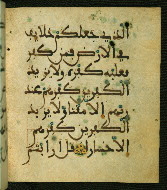 الذي جعلكم خلٮف
في الارض فمن كفر
فعليه كفره ولا يزيد
الكفرين كفرهم عند
ربهم الا مقتا ولا يزيد
الكفرين كفرهم
الا خسارا قل ارايتم